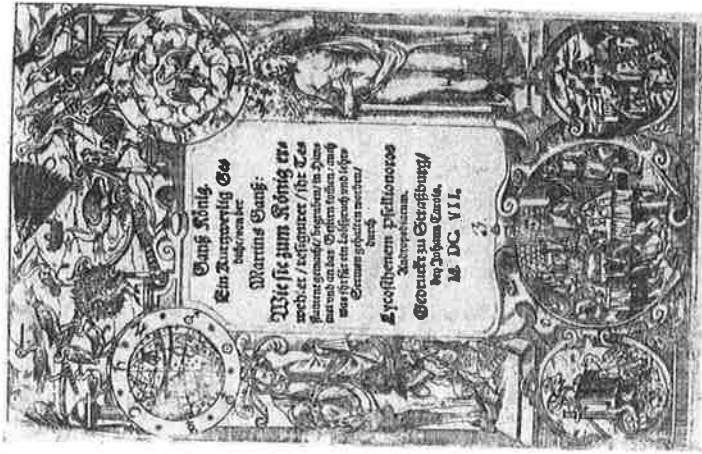 Ganß König.
Ein Kurtzweilig Ge⸗
dichte von der
Martins Ganß:
Wie sie zum König er⸗
wehlet / resigniret / ihr Tes
stament gemacht / begraben / in Him⸗
mel vnd an das Gestirn kommen / auch
was ihr für ein Lobspruch vnd lehre
Sermon gehalten worden /
durch
Lycosthenem Psellionoros
Andropediacum.
Gedruckt zu Straßburg /
bey Johann Carolo.
M. DC. VII.